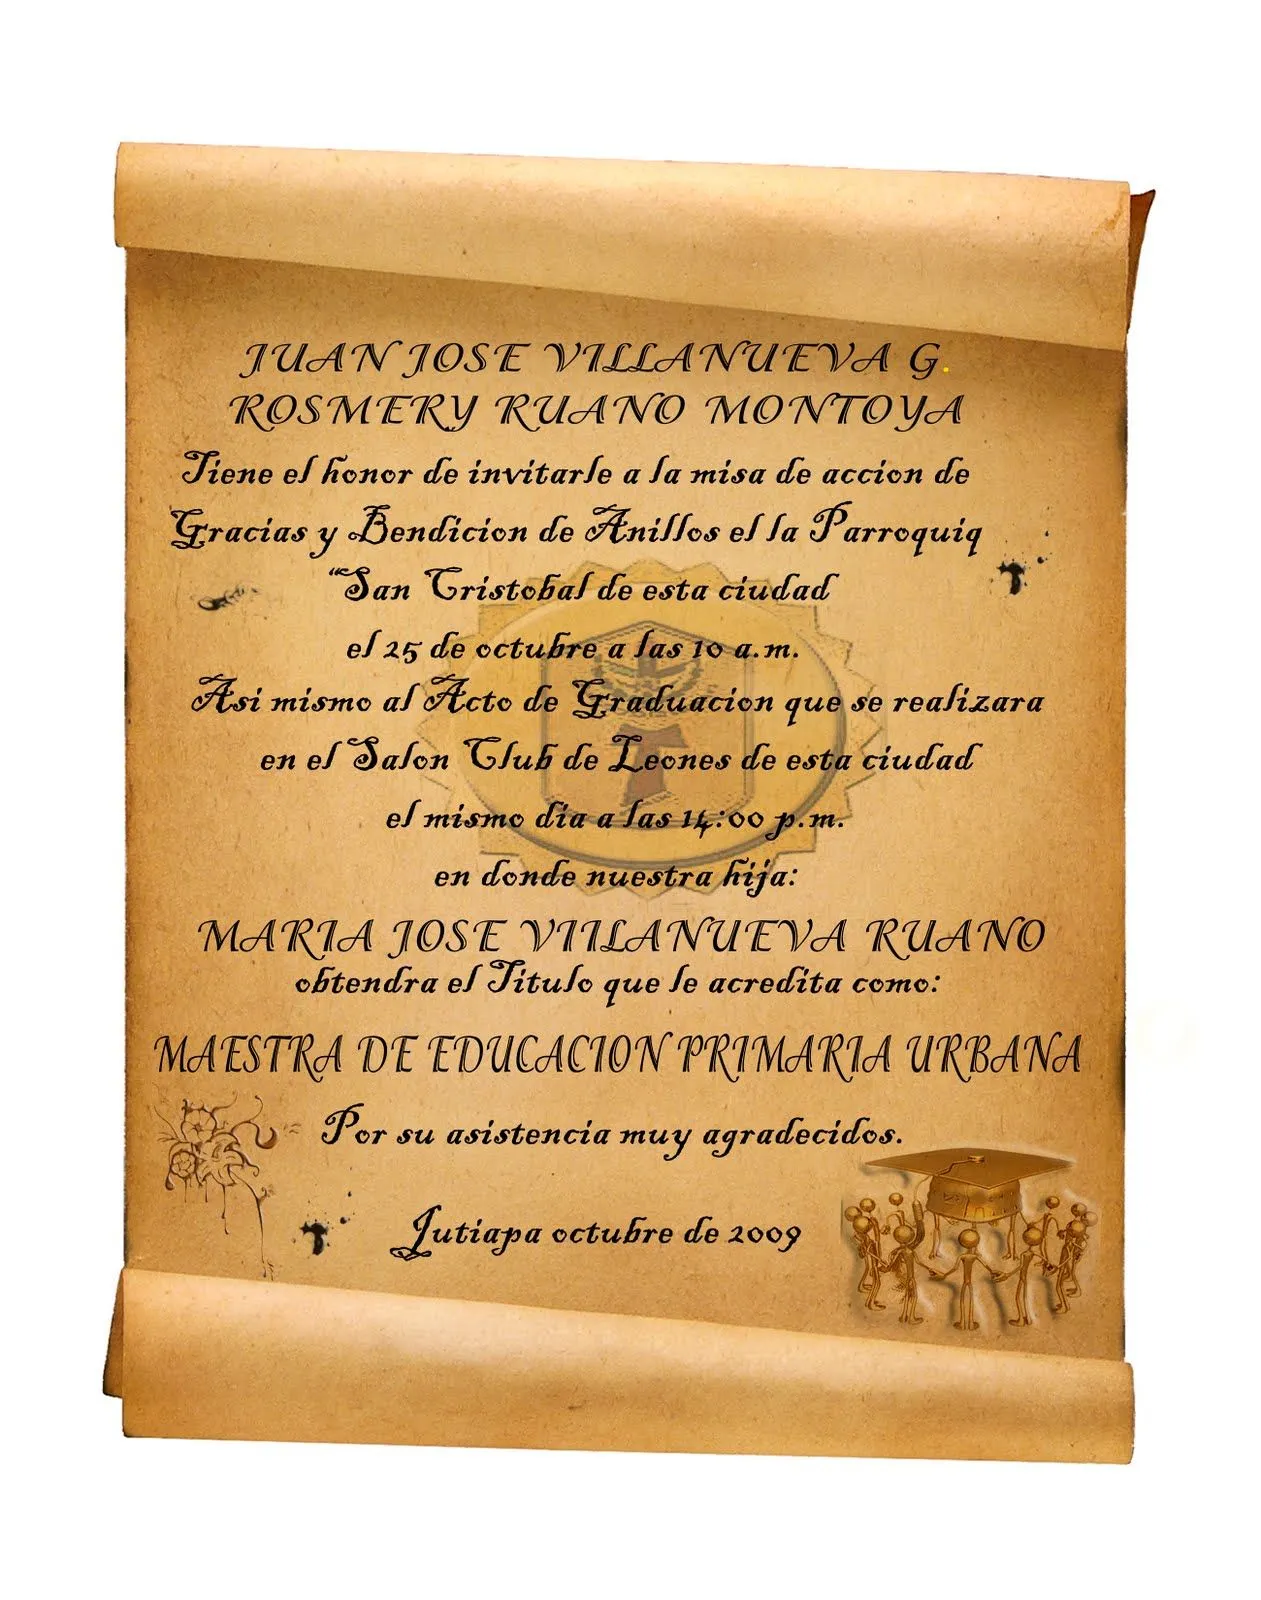 JUAN JOSE VILLANUEVA G.
ROSMERY RUANO MONTOYA
Tiene el honor de invitarle a la misa de accion de
Gracias y Bendicion de Anillos el la Parroquiq
“San Cristobal de esta ciudad
el 25 de octubre a las 10 a.m.
Asi mismo al Acto de Graduacion que se realizara
en el Salon Club de Leones de esta ciudad
el mismo dia a las 14:00 p.m.
en donde nuestra hija:
MARIA JOSE VIILANUEVA RUANO
obtendra el Titulo que le acredita como:
MAESTRA DE EDUCACION PRIMARIA URBANA
Por su asistencia muy agradecidos.
Jutiapa octubre de 2009